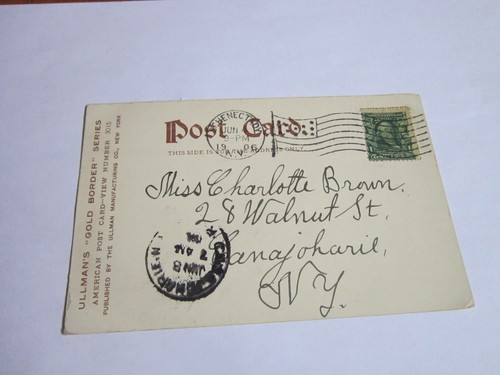 ULLMAN'S "GOLD BORDER" SERIES
AMERICAN POST CARD-VIEW NUMBER 3015
PUBLISHED BY THE ULLMAN MANUFACTURING CO., NEW YORK
Post Card.
THIS SIDE IS FOR THE ADDRESS ONLY.
JUN
PM
19 06
N.Y.
Miss Charlotte Brown.
28 Walnut St,
Canajoharie,
NY.
JUN 8
7 AM